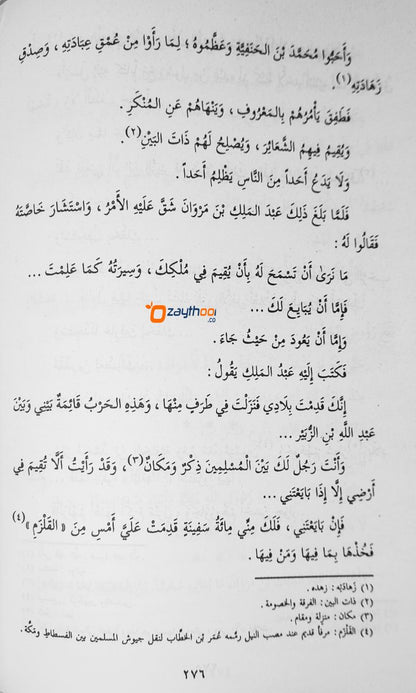 وَأَحَبُّوا مُحَمَّدَ بْنَ الْحَنَفِيَّةِ وَعَظَّمُوهُ ؛ لِمَا رَأَوْا مِنْ عُمْقِ عِبَادَتِهِ ، وَصِدْقِ
زَهَادَتِهِ (١).
فَطَفِقَ يَأْمُرُهُمْ بِالمَعْرُوفِ ، وَيَنْهَاهُمْ عَنِ المُنْكَرِ .
وَيُقِيمُ فِيهِمُ الشَّعَائِرَ ، وَيُصْلِحُ لَهُمْ ذَاتَ البَيْنِ (٢).
وَلَا يَدَعُ أَحَداً مِنَ النَّاسِ يَظْلِمُ أَحَداً .
فَلَمَّا بَلَغَ ذَلِكَ عَبْدَ المَلِكِ بْنَ مَرْوَانَ شَقَّ عَلَيْهِ الأَمْرُ ، وَاسْتَشَارَ خَاصَّتَهُ
فَقَالُوا لَهُ :
مَا نَرَىٰ أَنْ تَسْمَحَ لَهُ بِأَنْ يُقِيمَ فِي مُلْكِكَ ، وَسِيرَتُهُ كَمَا عَلِمْتَ ...
فَإِمَّا أَنْ يُبَايِعَ لَكَ ...
zaythoon.co
وَإِمَّا أَنْ يَعُودَ مِنْ حَيْثُ جَاءَ .
فَكَتَبَ إِلَيْهِ عَبْدُ المَلِكِ يَقُولُ :
إِنَّكَ قَدِمْتَ بِلَادِي فَنَزَلْتَ فِي طَرَفٍ مِنْهَا ، وَهَذِهِ الحَرْبُ قَائِمَةٌ بَيْنِي وَبَيْنَ
عَبْدِ اللَّهِ بْنِ الزُّبَيْرِ .
وَأَنْتَ رَجُلٌ لَكَ بَيْنَ المُسْلِمِينَ ذِكْرٌ وَمَكَانٌ (٣)، وَقَدْ رَأَيْتُ أَلَّا تُقِيمَ فِي
أَرْضِي إِلَّا إِذَا بَايَعْتَنِي ...
فَإِنْ بَايَعْتَنِي ، فَلَكَ مِنِّي مِائَةُ سَفِينَةٍ قَدِمَتْ عَلَيَّ أَمْسِ مِنَ « القَلْزَمِ » (٤)
فَخُذْهَا بِمَا فِيهَا وَمَنْ فِيهَا .
(١) زَهَادَتِه : زهده .
(٢) ذات البين : الفرقة والخصومة .
(٣) مكان : منزلة ومقام .
(٤) القلزم : مرفأ قديم عند مصب النيل رئمه عُمَر بْن الخطَّاب لنقل جيوش المسلمين بين الفسطاط ومَكَّة .
٢٧٦